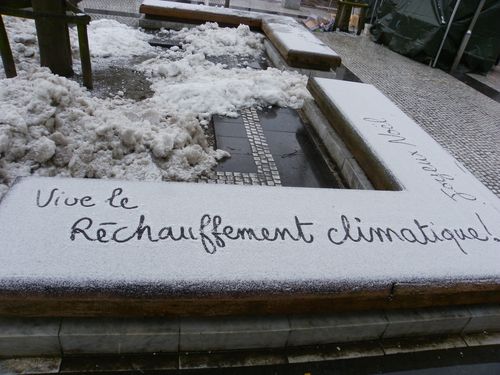 Vive le
Réchauffement climatique!
Joyeux Noël